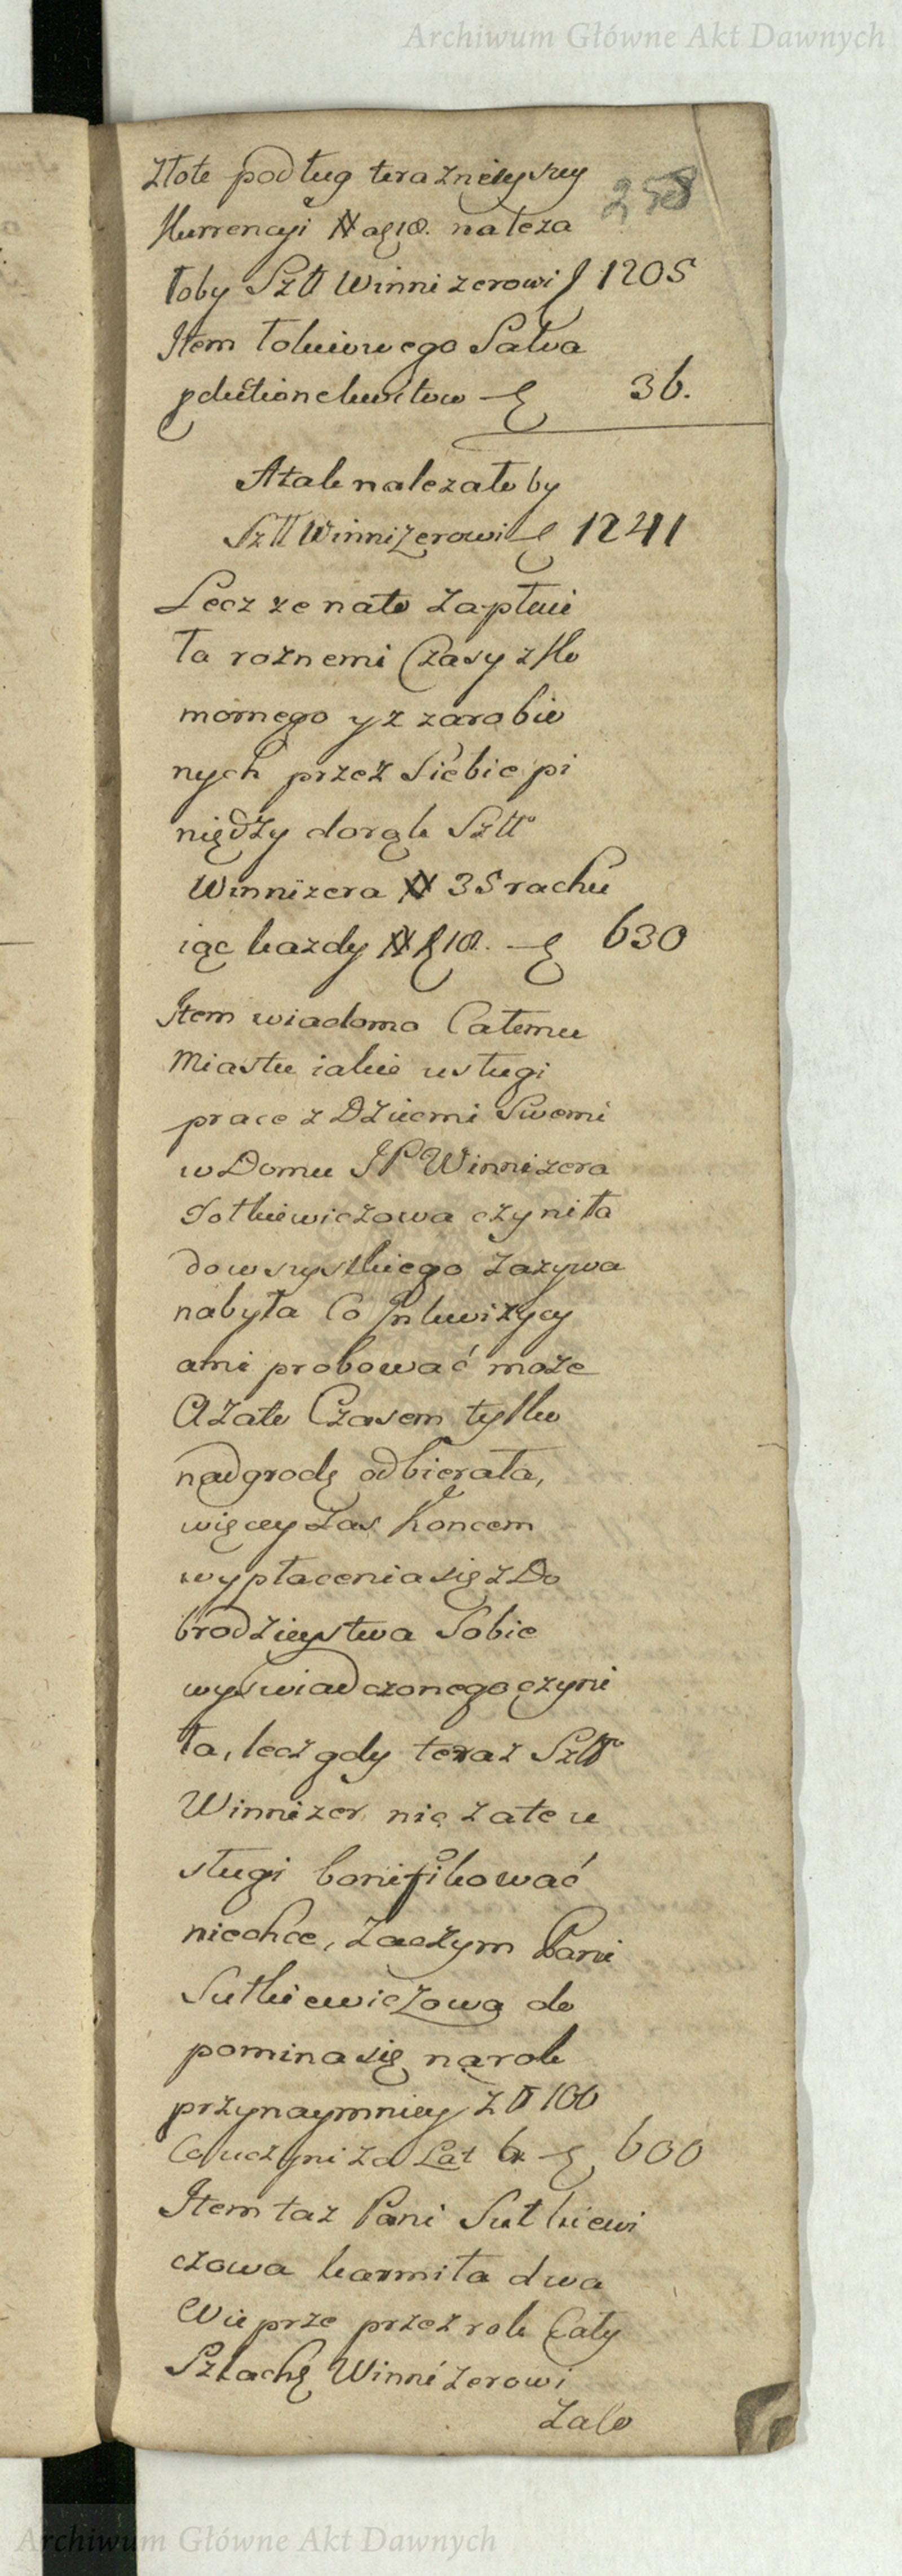 Archiwum Główne Akt Dawnych
258
złote podług teraznieyszey
Kurrencyi # a 18. należa
łoby Szltt Winnizerowi f 1205
Item łokciowego Salva
36.
A tak nalezało by
Szltt Winnizerowi f 1241
Lecz ze na to zapłaci
ła roznemi Czasy z Ko
mornego y z zarobio
nych przez Siebie pi
niędzy do rąk Szltt°
Winnizera # 35 rachu
iąc kazdy # f 18. f 630
Item wiadomo Całemu
Miastu iakie usługi
prace z Dziećmi Swemi
w Domu JP Winnizera
Sutkiewiczowa czyniła
do wszystkiego zazywa
na była Co Inkwizycy
ami probować może
A za to Czasem tylko
nadgrodę odbierała,
więcey zas koncem
wypłacenia się z Do
brodzieystwa Sobie
wyswiadczonego czyni
ła, lecz gdy teraz Szltt°
Winnizer nic za te u
sługi bonifikować
niechce, zaczym Pani
Sutkiewiczowa do
pomina się na rok
przynaymniey zł 100
Co uczyni za Lat 6 f 600
Item taz Pani Sutkiewi
czowa karmiła dwa
Wieprze przez rok Cały
Szlachę Winnizerowi
zaco
Archiwum Główne Akt Dawnych